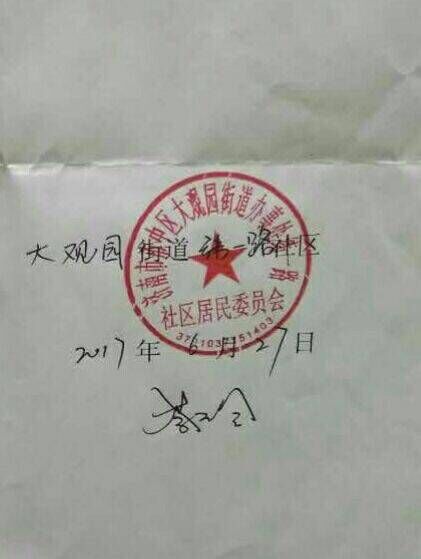 济南市市中区大观园街道办事处纬一路
大观园街道纬一路社区
社区居民委员会
2017年6月27日